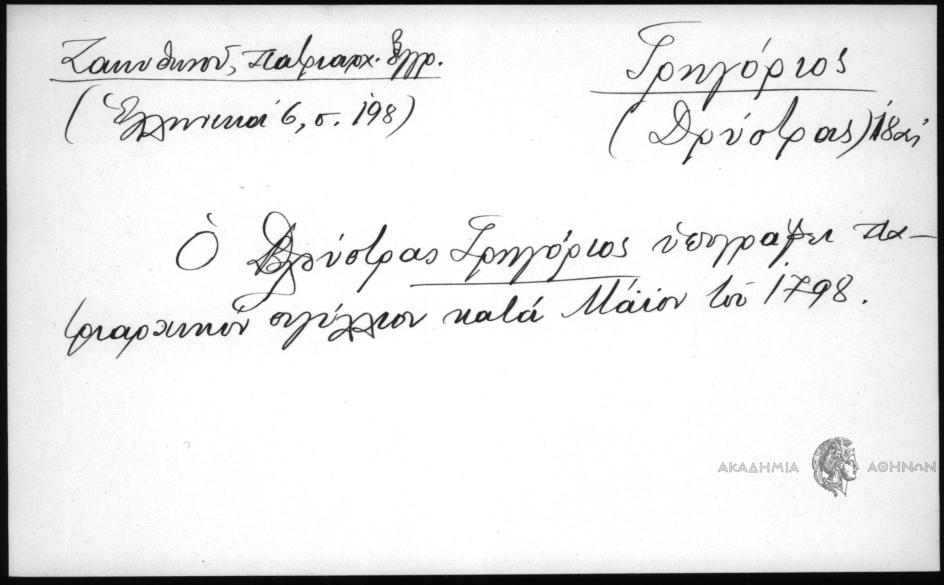 Ζακυθηνοῦ, Πατριαρχ. ἔγγρ.
(Ἑλληνικά 6, σ. 198)
Γρηγόριος
(Δρύστρας) 18 αἰ
Ὁ Δρύστρας Γρηγόριος ὑπογράφει πα-
τριαρχικόν σιγίλλιον κατά Μάϊον τοῦ 1798.
ΑΚΑΔΗΜΙΑ ΑΘΗΝΩΝ